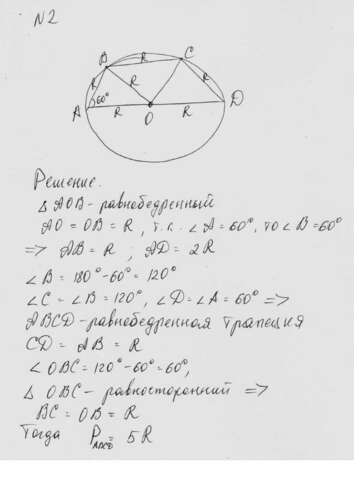 N2
B
R
C
R
R
R
A
60°
R
O
R
D
Решение.
Δ AOB - равнобедренный
AO = OB = R, т.к. ∠A = 60°, то ∠B = 60°
=> AB = R ; AD = 2R
∠B = 180° - 60° = 120°
∠C = ∠B = 120°, ∠D = ∠A = 60° =>
ABCD - равнобедренная трапеция
CD = AB = R
∠OBC = 120° - 60° = 60°,
Δ OBC - равносторонний =>
BC = OB = R
Тогда P_ABCD = 5R